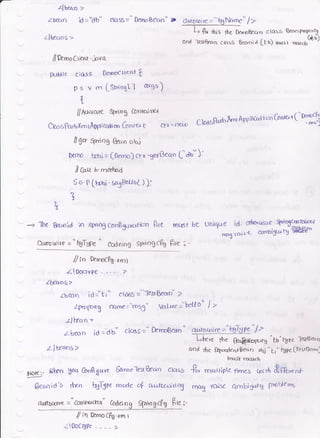 </bean>
<bean id="db" class="DemoBean" autowire="byName"/>
</beans>
for this the DemoBean class Bean property
and TestBean class BeanId (tb) must match
//DemoClient.java
public class DemoClient {
p s v m (String[] args)
{
//Activate Spring Container
ClassPathXmlApplicationContext ctx=new ClassPathXmlApplicationContext("DemoCfg
//get Spring Bean obj
Demo bobj=(Demo)ctx.getBean("db");
//Call b.method
S.o.p(bobj.sayHello());
}
}
→ The BeanId in spring configuration file must be unique id; otherwise Spring Container
may raise ambiguity
autowire="byType" coding Spring cfg file:-
//In DemoCfg.xml
<!Doctype - - - - >
<beans>
<bean id="t1" class="TestBean">
<property name="msg" value="hello"/>
</bean>
<bean id="db" class="DemoBean" autowire="byType"/>
</beans>
Here the property 'tb' type TestBean
and the Dependent Bean obj "t1" type (TestBean)
must match
Note:- When you configure Same TestBean class for multiple times with different
BeanId's then byType mode of autowiring may raise ambiguity problem,
autowire="constructor" Coding Spring cfg file:-
// In DemoCfg.xml
<!Doctype - - - - >